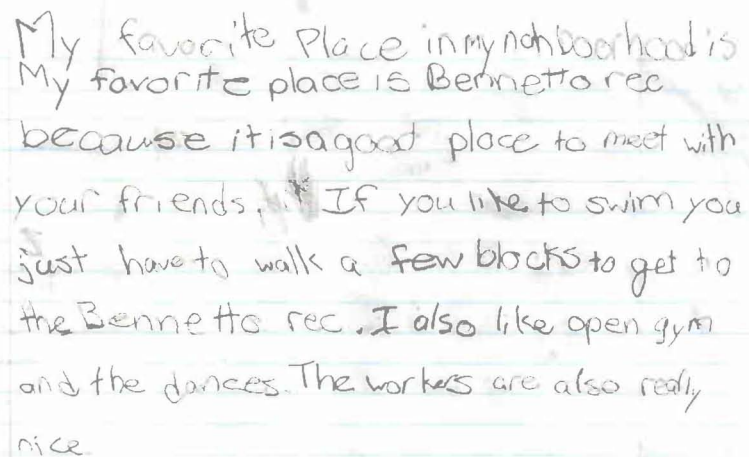 My favorite Place in my nahboorhood is
My favorite place is Bennetto rec
because it is a good place to meet with
your friends. If you like to swim you
just have to walk a few blocks to get to
the Bennetto rec. I also like open gym
and the dances. The workers are also really
nice